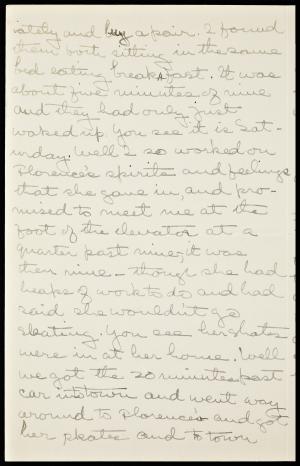 iately and buy a pair. I found
them both sitting in the same
bed eating breakfast. It was
about five minutes of nine
and they had only just
waked up. You see it is Sat-
urday. Well I so worked on
Florence's spirits and feelings
that she gave in, and pro-
mised to meet me at the
foot of the elevator at a
quarter past nine; it was
then nine - though she had
heaps of work to do and had
said she wouldn't go
skating. You see her skates
were in at her home. Well
we got the 20 minutes past
car into town and went way
around to Florence's and got
her skates and to town